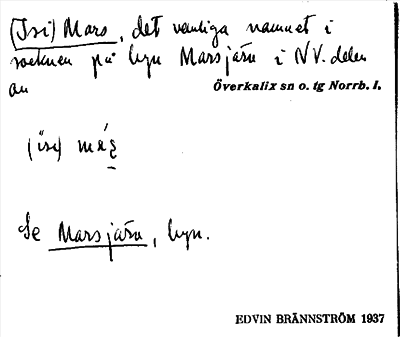 (Isi) Mars, det vanliga namnet i
socknen på byn Marsjärn i NV. delen
av Överkalix sn o. tg Norrb. l.
(ɩsɩ)
Se Marsjärn, byn.
EDVIN BRÄNNSTRÖM 1937